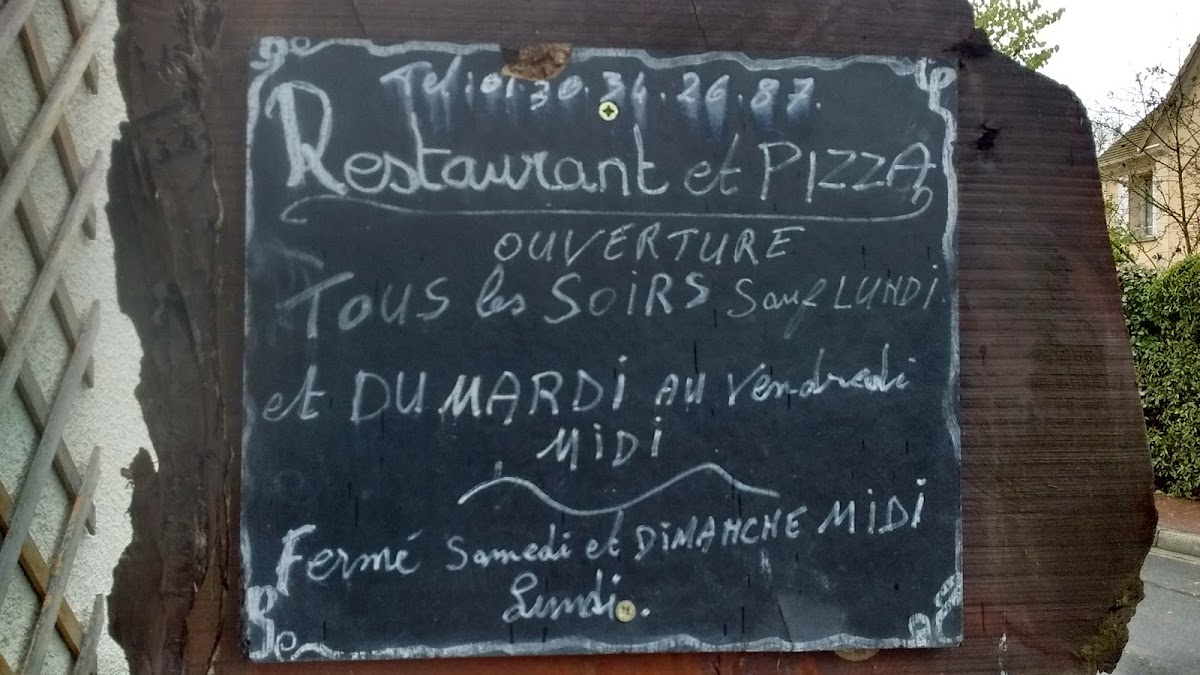 Tel:01.30.34.26.87.
Restaurant et PIZZA
OUVERTURE
TOUS les SOiRS Sauf LUNDi
et DU MARDi AU Vendredi
MiDi
Fermé Samedi et DiMANCHE MiDi
Lundi.